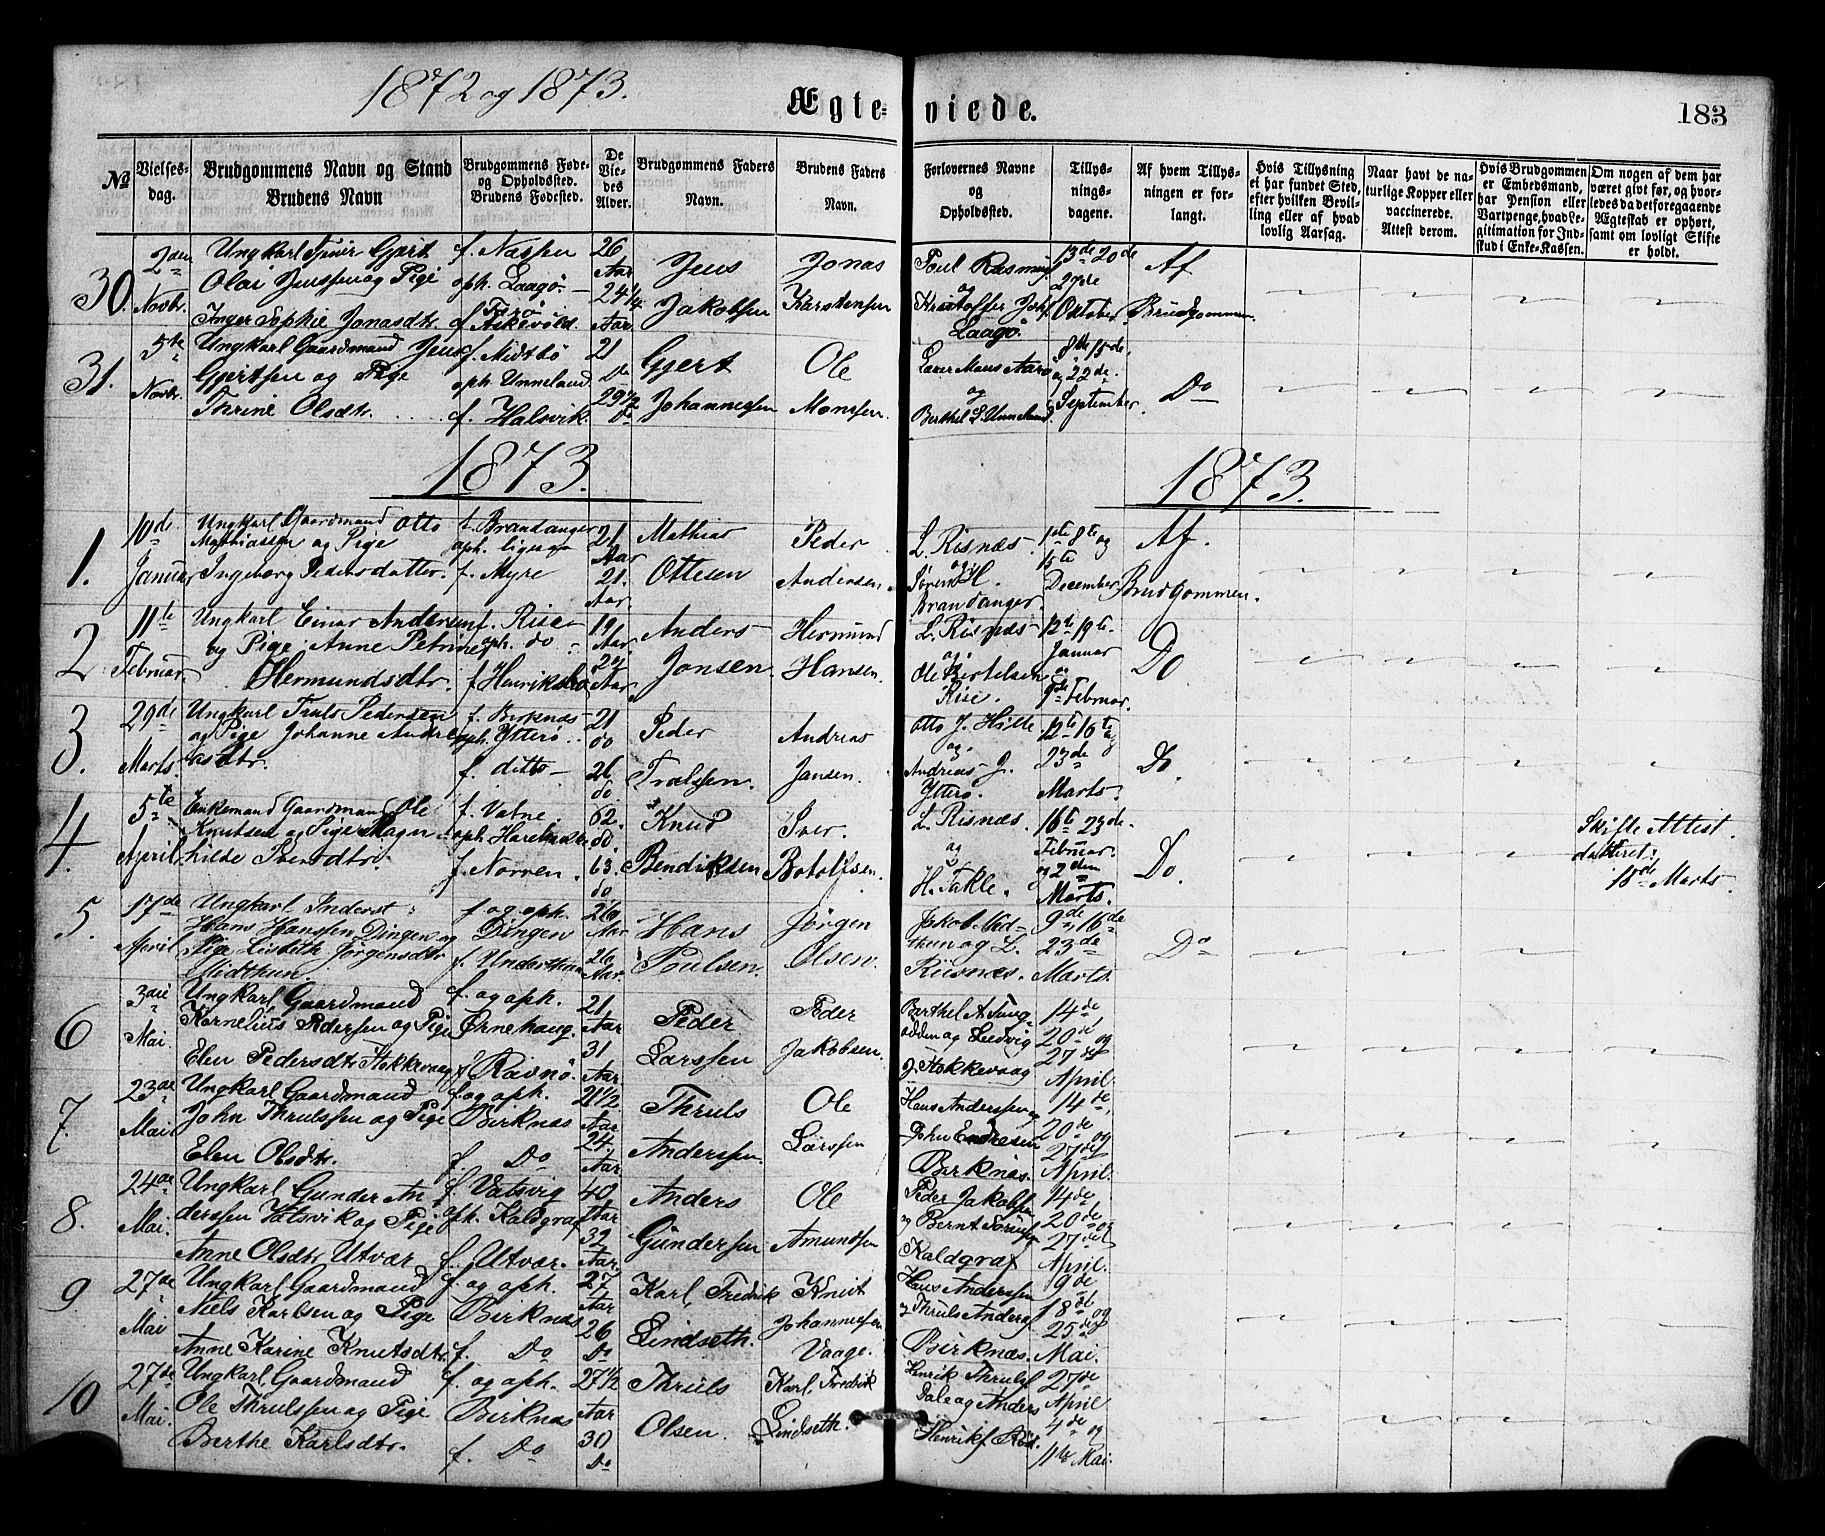 1872 og 1873.
Ægteviede.
183
No
Vielsesdag.
Brudgommens Navn og Stand
Brudens Navn
Brudgommens Føde- og Opholdssted.
Brudens Fødested.
De Viedes Alder.
Brudgommens Faders Navn.
Brudens Faders Navn.
Forlovernes Navne og Opholdssted.
Tillysningsdagene.
Af hvem Tillysningen er forlangt.
Hvis Tillysning ei har fundet Sted, efter hvilken Bevilling eller af hvad lovlig Aarsag.
Naar havt de naturlige Kopper eller vaccinerede. Attest derom.
Hvis Brudgommen er Embedsmand, har Pension eller Vartpenge, hvad Legitimation for Indskud i Enke-Kassen.
Om nogen af dem har været givt før, og hvorledes da det foregaaende Ægteskab er ophørt, samt om lovligt Skifte er holdt.
30. 2den Novbr.
Ungkarl Gjert
Olai Jenssen og Pige
Inger Sophie Jonasdtr.
f. Nassen
oph. Laagø
f. Askevold
26 Aar
24 1/4 Aar
Jens Jakobsen
Jonas Karstensen
Poul Rasmus
og
Kristoffer Joh.
Laagø.
13de 20de
27de
Oktober
Af Brudgommen.
31. 5te Novbr.
Ungkarl Gaardmand Jens
Gjertsen og Pige
Thrine Olsdtr.
f. Midtbø
oph. Unneland
f. Halsvik.
21 Do
29 1/2 Do
Gjert Johannessen
Ole Monssen.
Lærer Mons Aarø
og
Berthel L. Unneland
8de 15de.
og 22de.
September.
Do
1873.
1873.
1. 10de Januar
Ungkarl Gaardmand Otto
Mathiassen og Pige
Ingeborg Pedersdatter.
f. Brandanger
oph. ligesaa
f. Myre
21 Aar
21. Aar.
Mathias Ottesen
Peder Andersen.
L. Risnæs.
og
Søren H.
Brandanger.
1ste 8de og
15de
December
Af. Brudgommen.
2 11te Februar.
Ungkarl Einar Andersen
og Pige Anne Petrine
Hermundsdtr.
f. Rise
oph. do
f. Henriksbø
19 Aar.
Aar
Anders Jonsen.
Hermund Hansen.
L. Risnæs
og
Ole Bertelsen
Rise.
12te 19te.
Januar
og
9de Februar.
Do
3. 29de Marts.
Ungkarl Truls Pedersen
og Pige Johanne Andre
asdtr.
f. Birknæs
oph. Ytterø
f. ditto
21 do
26 do.
Peder Trulssen.
Andreas Jansen.
Otto J. Hille
og
Andreas J.
Ytterø.
12te 16te og
23de
Marts.
Do.
4. 5te April
Enkemand Gaardmand Ole
Knutsen og Pige Magn
hilde Iversdtr.
f. Vatne.
oph.
f. Norven.
62. do.
63. do
Knud Bendiksen
Iver. Botolfsen.
L. Risnæs.
og
H. Takle.
16de 23de.
Februar.
og 2den
Marts.
Do.
Skifte Attest.
datteret:
18de Marts.
5. 17de April
Ungkarl Inderst
Hans Hanssen Dingen og
Pige Lisbeth Jørgensdtr
Midthun.
f. og oph.
Dingen
f. Underthun
26 Aar
26 Aar.
Hans Poulsen.
Jørgen Olsen.
Jakob Mid-
thun og L.
Riisnæs.
9de 16de
23de
Marts.
Do
6 3die Mai.
Ungkarl Gaardmand
Kornelius Pedersen og Pige
Elen Pedersdtr Stokkevaag
f. og oph.
Ørnehaug.
f. Ravnø.
21 Aar
31 Aar
Peder Larssen
Peder Jakobsen.
Berthel A Tung-
odden og Ludvig
J. Stokkevaag
14de
20de og
27de
April.
7. 23de Mai
Ungkarl Gaardmand
John Thrulssen og Pige
Elen Olsdtr.
f. og oph.
Birknæs
f. Do
21 1/2 Aar
24 Aar
Thruls Anderssen.
Ole Larssen
Hans Anderssen og
John Endresen
Birknæs.
14de
20de og
27de
April.
8. 24de Mai.
Ungkarl Gunder An
derssen Vatsvik og Pige
Anne Olsdtr. Utvær
f. Vatsvig
oph. Kaldgraf
f. Utvær.
40 Aar
32 Aar.
Anders Gundersen
Ole Amundsen
Peder Jakobsen
og Bernt Sørens
Kaldgraf
14de
20de og
27de
April.
9. 27de Mai
Ungkarl Gaardmand
Niels Karlsen og Pige
Anne Karine Knutsdtr.
f. og oph.
Birknæs
f. Do
27 Aar
26 Do
Karl Fredrik Lindseth.
Knut Johannessen Vaage.
Hans Anderssen
og Thruls Anders
Birknæs.
9de
18de og
25de
Mai.
10 27de Mai.
Ungkarl Gaardmand
Ole Thrulssen og Pige
Berthe Karlsdtr.
f. og oph.
Birknæs
f. Do
27 1/2 Aar
30 Do
Thruls Olsen.
Karl Fredrik Lindseth.
Henrik Thruls
Dale og Anders
Henriks
27de
April
4de og
11te Mai.